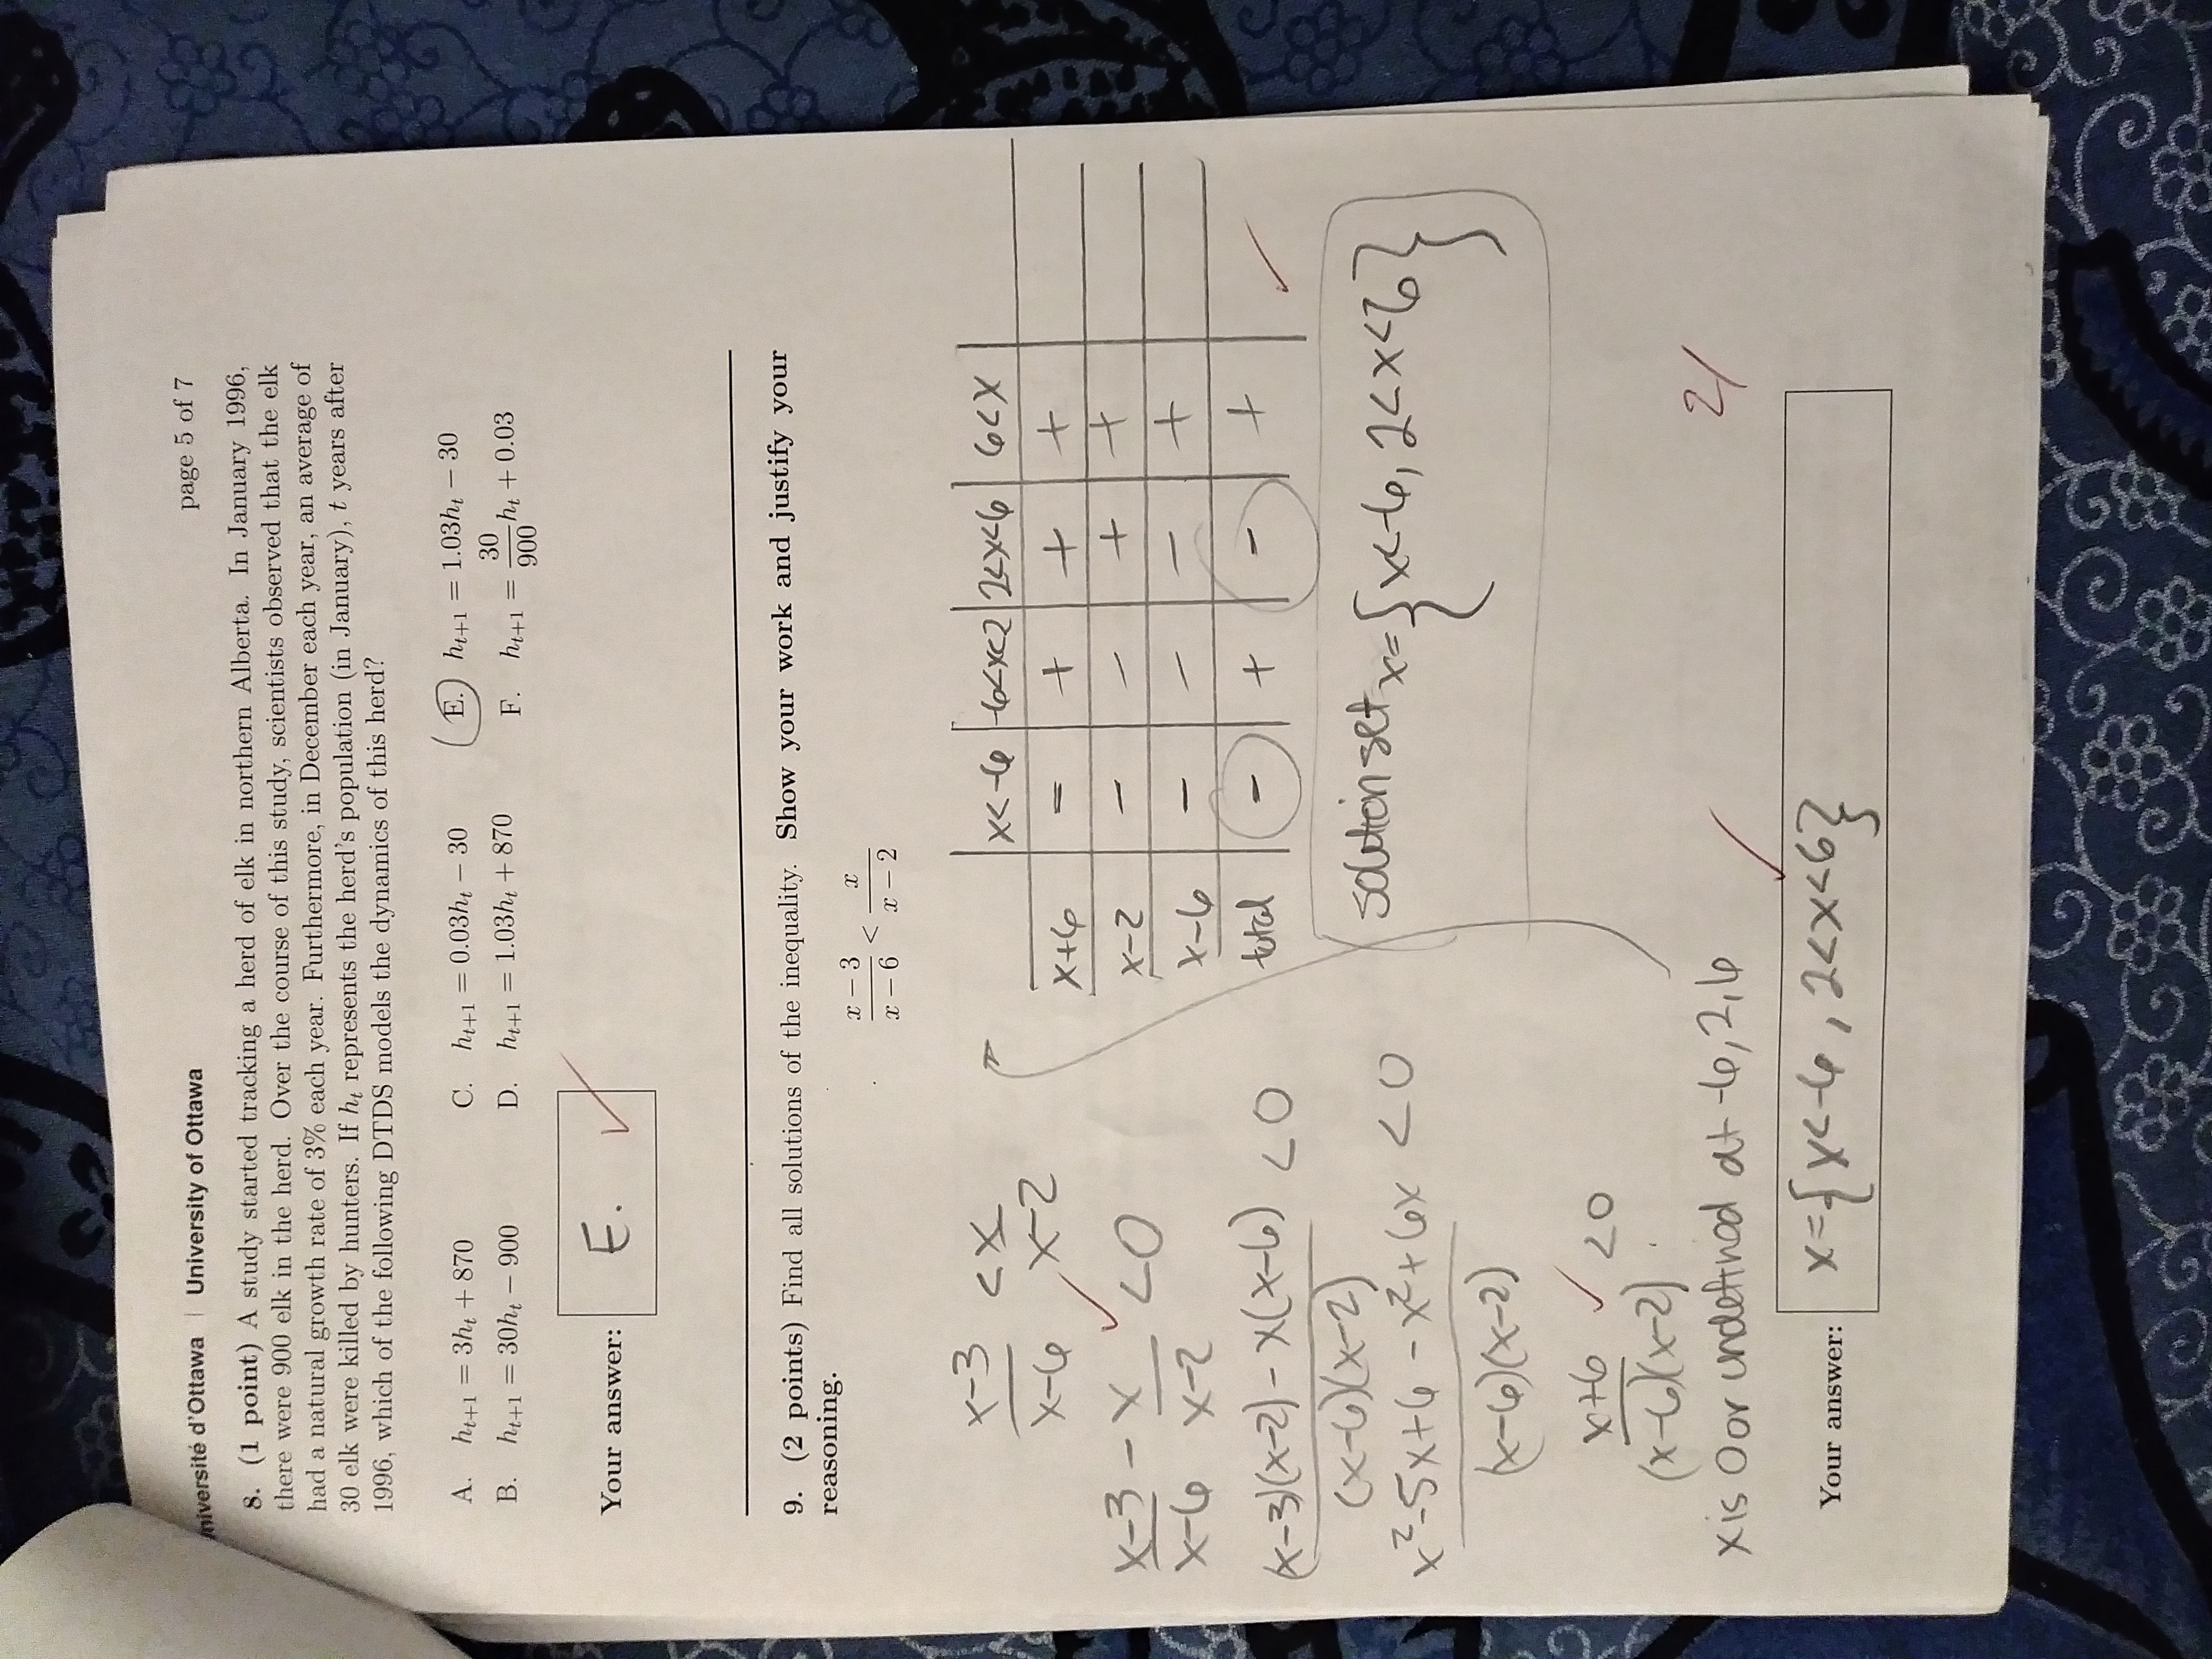 page 5 of 7
niversité d'Ottawa | University of Ottawa
8. (1 point) A study started tracking a herd of elk in northern Alberta. In January 1996,
there were 900 elk in the herd. Over the course of this study, scientists observed that the elk
had a natural growth rate of 3% each year. Furthermore, in December each year, an average of
30 elk were killed by hunters. If hₜ represents the herd's population (in January), t years after
1996, which of the following DTDS models the dynamics of this herd?
A. hₜ₊₁ = 3hₜ + 870
C. hₜ₊₁ = 0.03hₜ − 30
E. hₜ₊₁ = 1.03hₜ − 30
B. hₜ₊₁ = 30hₜ − 900
D. hₜ₊₁ = 1.03hₜ + 870
F. hₜ₊₁ = 30/900 hₜ + 0.03
Your answer: E. ✓
9. (2 points) Find all solutions of the inequality. Show your work and justify your
reasoning.
(x − 3)/(x − 6) < x/(x − 2)
(x-3)/(x-6) < x/(x-2)
(x-3)/(x-6) - x/(x-2) < 0 ✓
((x-3)(x-2) - x(x-6))/((x-6)(x-2)) < 0
(x²-5x+6 - x²+6x)/((x-6)(x-2)) < 0
(x+6)/((x-6)(x-2)) < 0 ✓
x is 0 or undefined at -6, 2, 6
x<-6 | -6<x<2 | 2<x<6 | 6<x
x+6 | - | + | + | +
x-2 | - | - | + | +
x-6 | - | - | - | +
total | - | + | - | + ✓
solution set x={x<-6, 2<x<6}
2/
Your answer: x={x<-6, 2<x<6} ✓